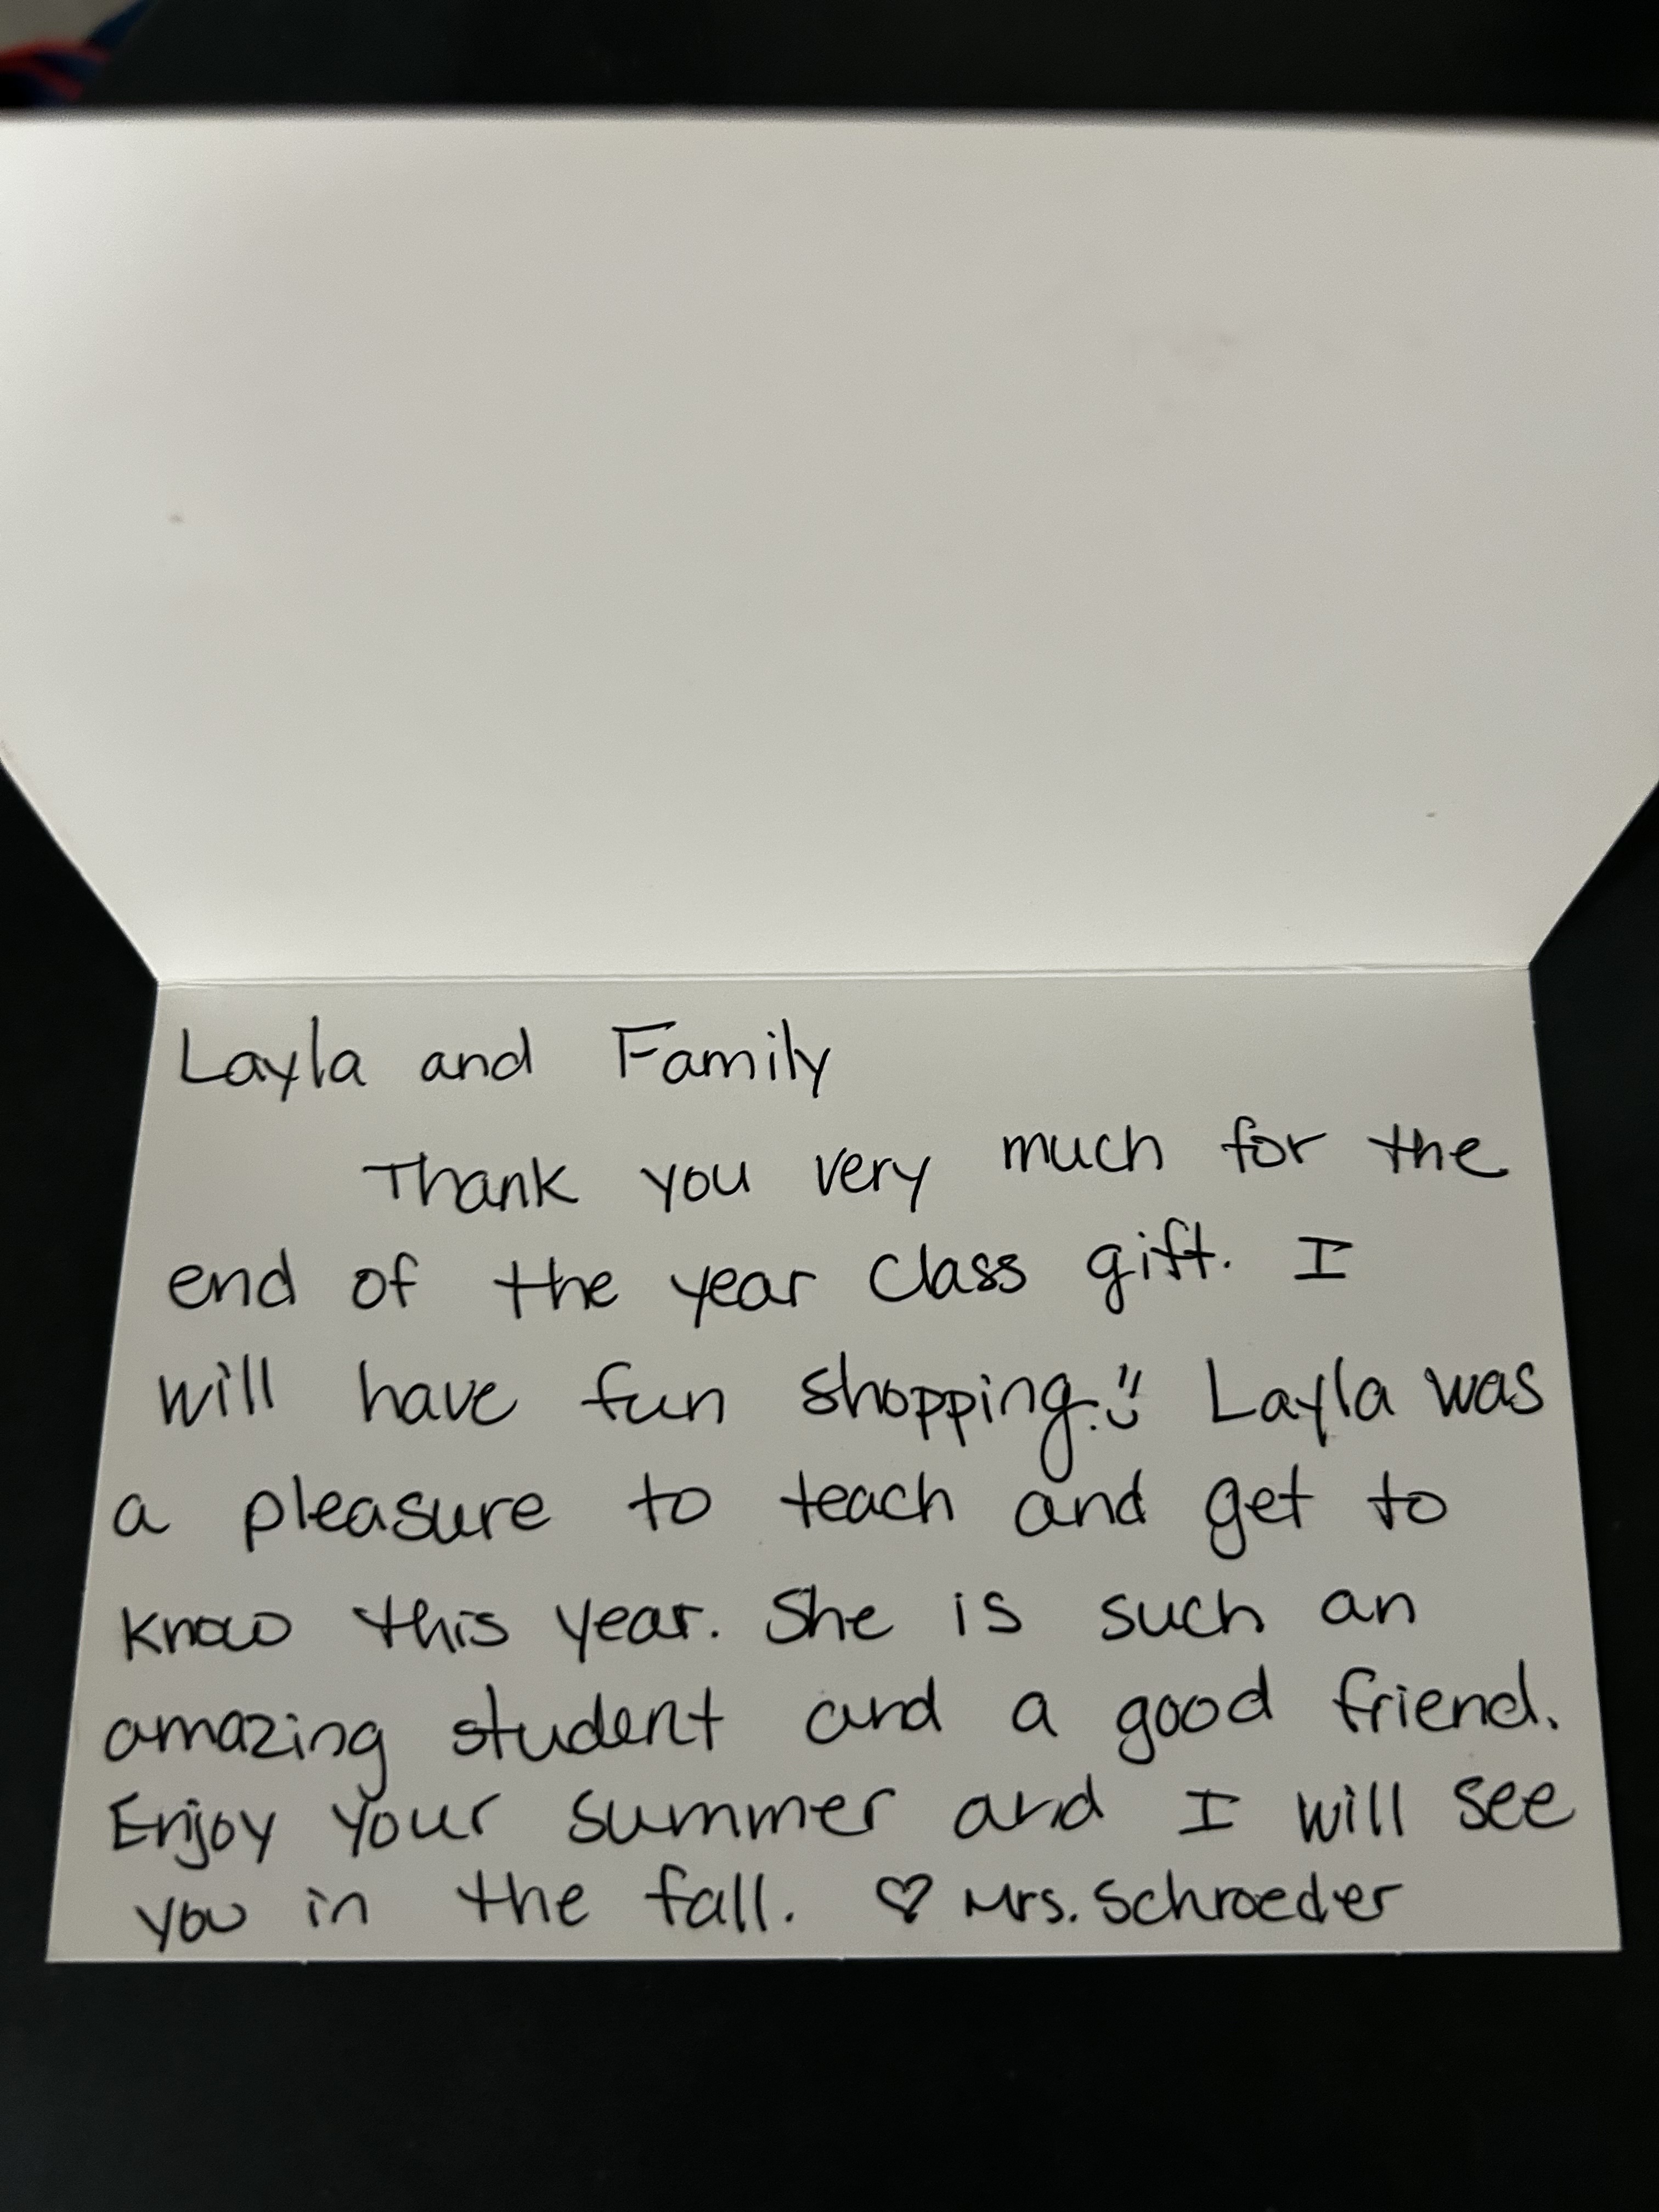 Layla and Family
Thank you very much for the
end of the year class gift. I
will have fun shopping. Layla was
a pleasure to teach and get to
know this year. She is such an
amazing student and a good friend.
Enjoy your summer and I will see
you in the fall. ♡ Mrs. Schroeder